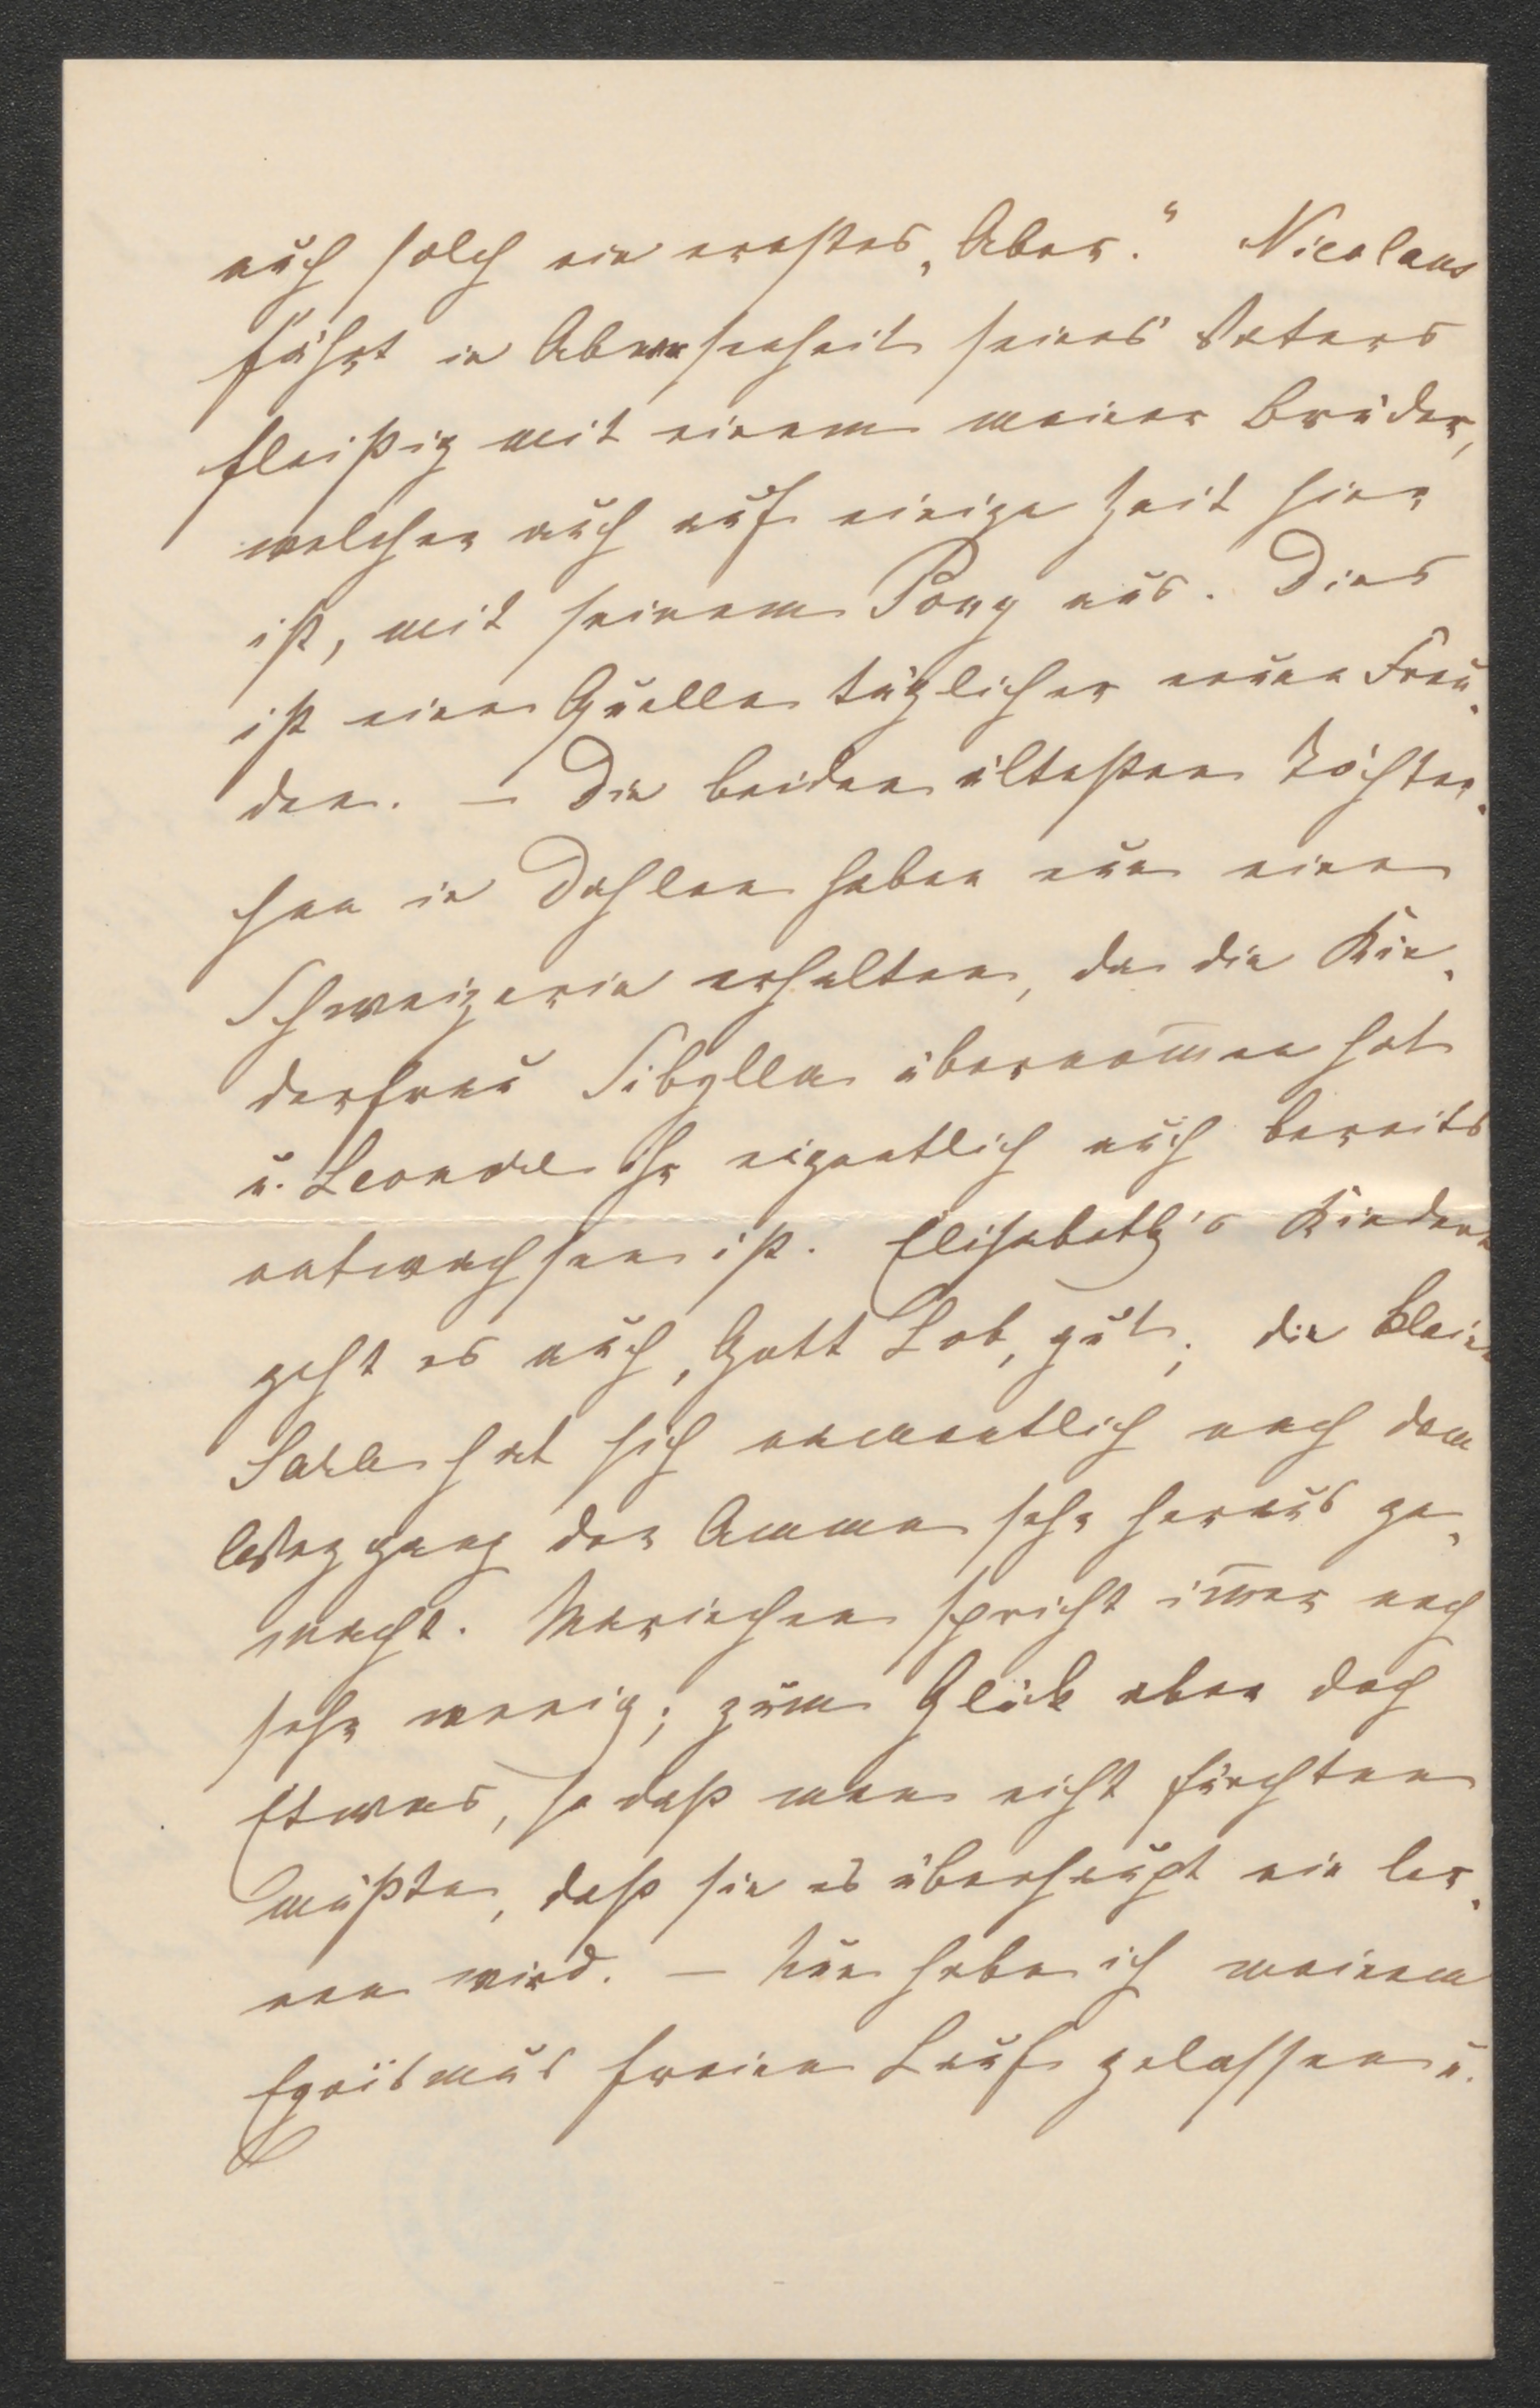 auch solch ein ernstes „Aber.“ Nicolaus
fährt in Abwesenheit seines Vaters
fleißig mit einem meiner Brüder,
welcher auch auf einige Zeit hier
ist, mit seinem Pony aus. Dies
ist eine Quelle täglicher neuer Freu-
den. — Die beiden ältesten Töchter-
chen in Dahlen haben nun eine
Schweizerin erhalten, da die Kin-
derfrau Sibylla übernom̅en hat
u. ihr eigentlich auch bereits
entwachsen ist. Elisabeth's Kindern
geht es auch, Gott Lob, gut; die kleine
hat sich namentlich nach dem
Weggang der Amme sehr heraus ge-
macht. Mariechen spricht im̅er noch
sehr wenig; zum Glück aber doch
Etwas, so daß man nicht fürchten
müßte, daß sie es überhaupt nie ler-
nen wird. — Nun habe ich meinem
Egoismus freien Lauf gelassen u.